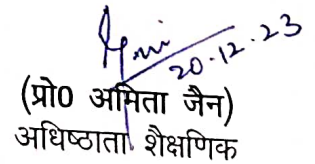 20.12.23
(प्रो0 अमिता जैन)
अधिष्ठाता शैक्षणिक